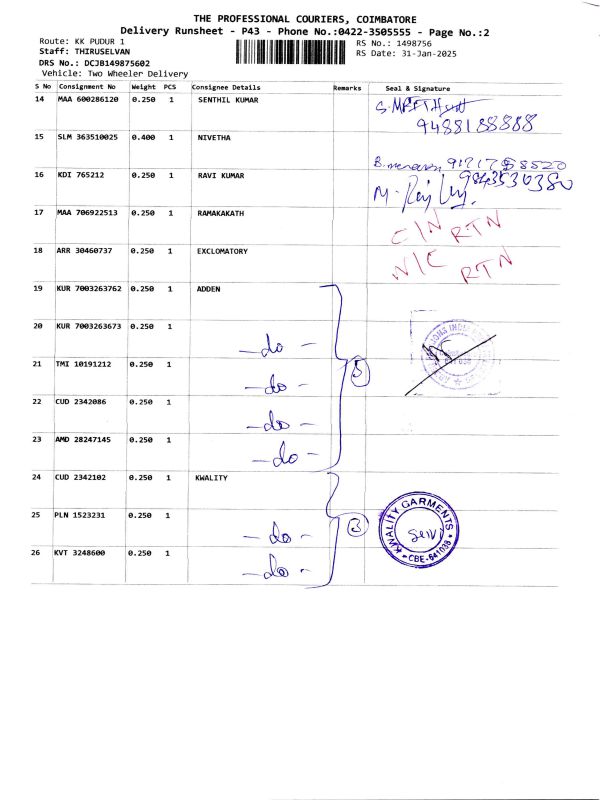 THE PROFESSIONAL COURIERS, COIMBATORE
Delivery Runsheet - P43 - Phone No.:0422-3505555 - Page No.:2
Route: KK PUDUR 1 RS No.: 1498756
Staff: THIRUSELVAN RS Date: 31-Jan-2025
DRS No.: DCJB149875602
Vehicle: Two Wheeler Delivery
S No Consignment No Weight PCS Consignee Details Remarks Seal & Signature
14 MAA 600286120 0.250 1 SENTHIL KUMAR
9488188888
15 SLM 363510025 0.400 1 NIVETHA
16 KDI 765212 0.250 1 RAVI KUMAR
M.
17 MAA 706922513 0.250 1 RAMAKAKATH C/N RTN
18 ARR 30460737 0.250 1 EXCLOMATORY N/C RTN
19 KUR 7003263762 0.250 1 ADDEN
20 KUR 7003263673 0.250 1 -do-
21 TMI 10191212 0.250 1 -do- 5
22 CUD 2342086 0.250 1 -do-
23 AMD 28247145 0.250 1 -do-
24 CUD 2342102 0.250 1 KWALITY
25 PLN 1523231 0.250 1 -do- 3 KWALITY GARMENTS
26 KVT 3248600 0.250 1 -do- CBE-641038